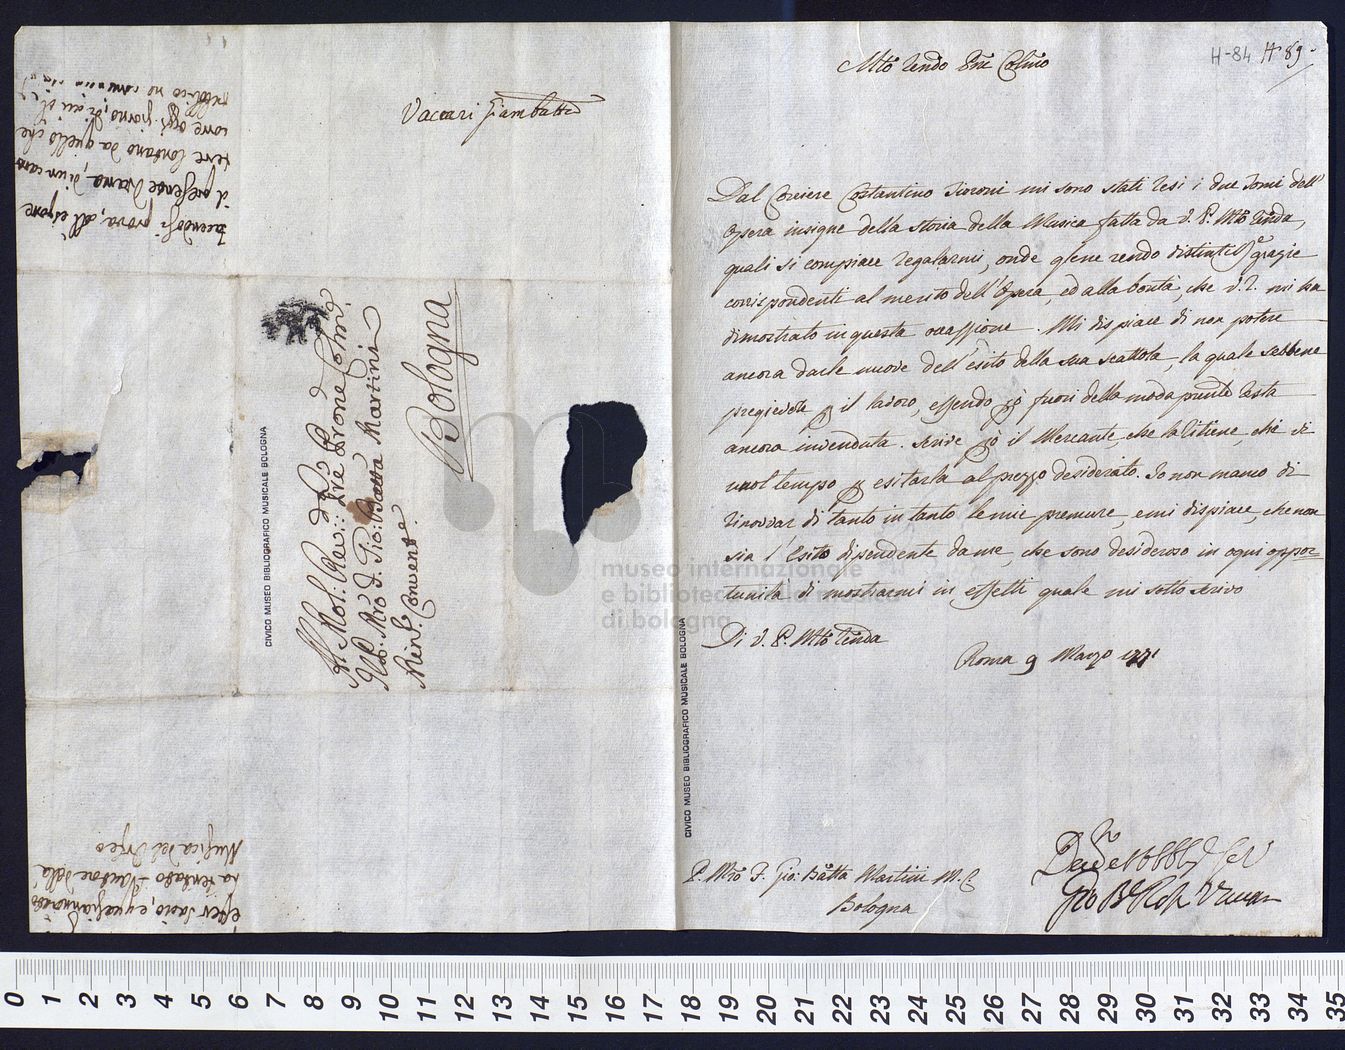 H-84 H 89
Mto Rendo Pre Colmo
Dal Corriere Costantino mi sono stati resi i due Tomi dell'
Opera insigne della Storia della Musica fatta da V. P. Mto Rnda,
quali si compiace regalarmi, onde glene rendo distinte grazie
corrispondenti al merito dell'Opera, ed alla bontà, che V. P. mi ha
dimostrato in questa occassione. Mi dispiace di non potere
ancora darle nuove dell'esito della sua scattola, la quale sebbene
pregievole p il lavoro, essendo pò fuori della moda pnte resta
ancora invenduta. Scrive pò il Mercante, che la ritiene, che vi
vuol tempo p esitarla al prezzo desiderato. Io non manco di
rinovvar di tanto in tanto le mie premure, e mi dispiace, che non
sia l'esito dipendente da me, che sono desideroso in ogni oppor=
tunità di mostrarmi in effetti quale mi sottoscrivo
Di V. P. Mto Renda
Roma 9 Marzo 1771
P. Mro F. Gio: Batta Martini M. C.
Bologna
Vaccari Giambatta
Al Mol: Rev: Pad: Prone Colmo
Il P. Mro F. Gio: Batta Martini
Min: Convent.
Bologna
CIVICO MUSEO BIBLIOGRAFICO MUSICALE BOLOGNA
CIVICO MUSEO BIBLIOGRAFICO MUSICALE BOLOGNA
il presente Drama, di un cara
tere lontano da quello che
corre oggi giorno, di cui il
publico ne
Musica del Orfeo
museo internazionale
e biblioteca della musica
di bologna
0 1 2 3 4 5 6 7 8 9 10 11 12 13 14 15 16 17 18 19 20 21 22 23 24 25 26 27 28 29 30 31 32 33 34 35